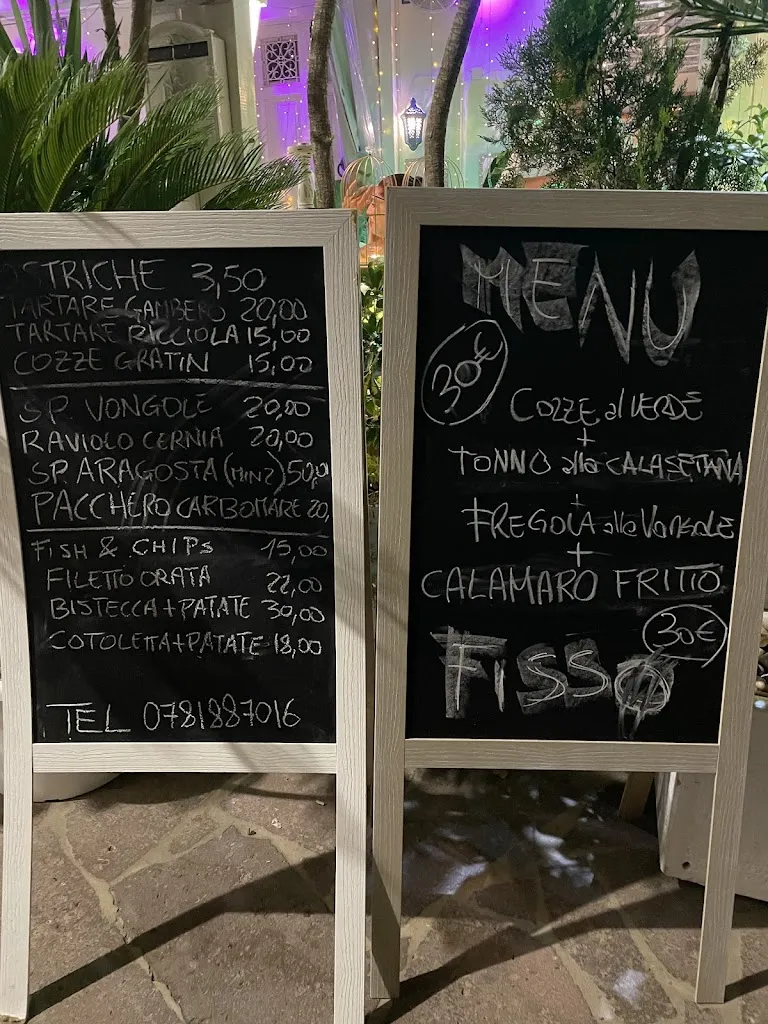 OSTRICHE 3,50
TARTARE GAMBERO 20,00
TARTARE RICCIOLA 15,00
COZZE GRATIN 15,00
SP. VONGOLE 20,00
RAVIOLO CERNIA 20,00
SP. ARAGOSTA (MIN 2) 50,0
PACCHERO CARBOMARE 20,
FISH & CHIPS 15,00
FILETTO ORATA 22,00
BISTECCA + PATATE 30,00
COTOLETTA + PATATE 18,00
TEL 0781887016
MENU
30€
COZZE al VERDE
+
TONNO alla CALASETANA
+
FREGOLA alle Vongole
+
CALAMARO FRITTO
30€
FISSO